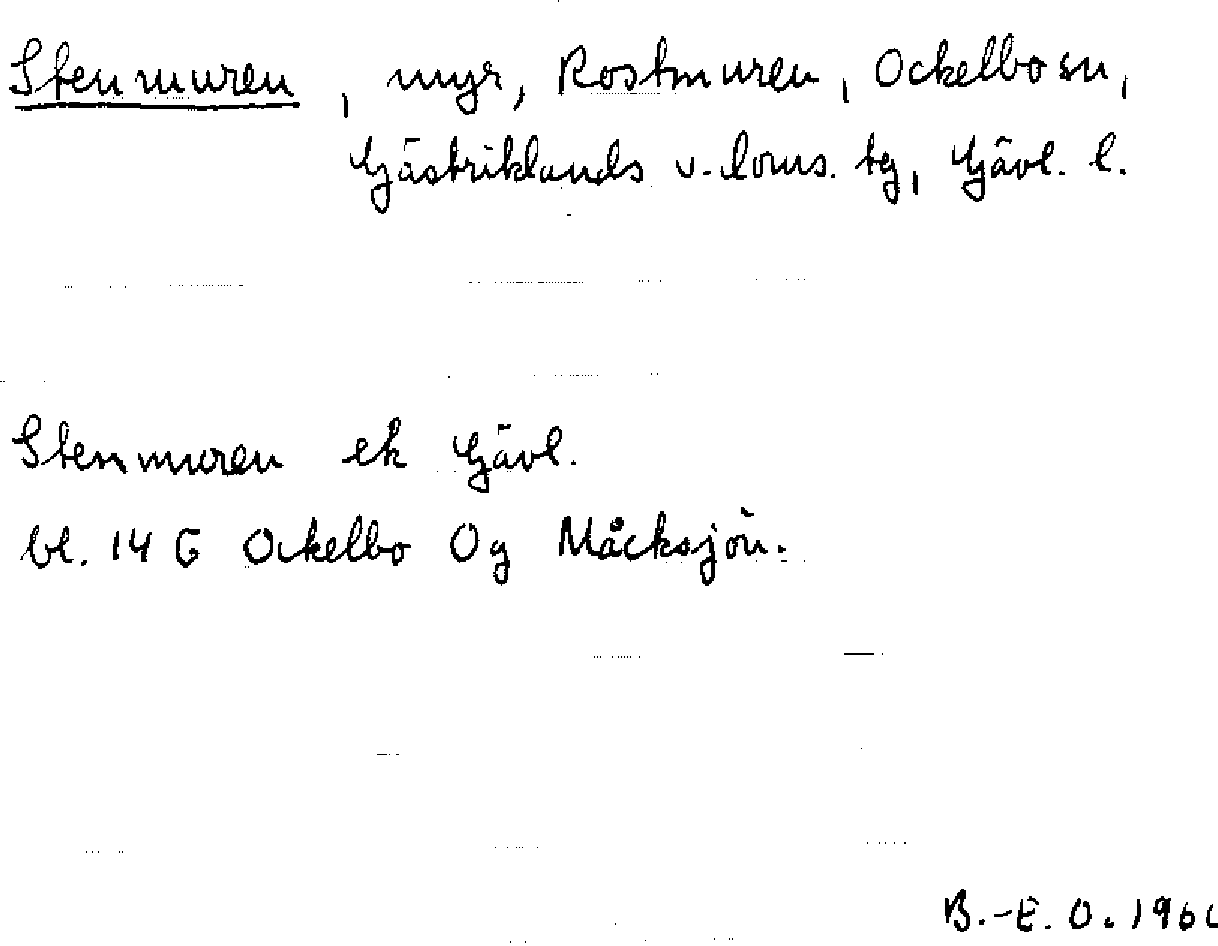 Stenmuren, myr, Rostmuren, Ockelbo sn,
Gästriklands v. doms. tg, Gävl. l.
Stenmuren ek Gävl.
bl. 14 G Ockelbo 0g Måcksjön.
B.-E. O.